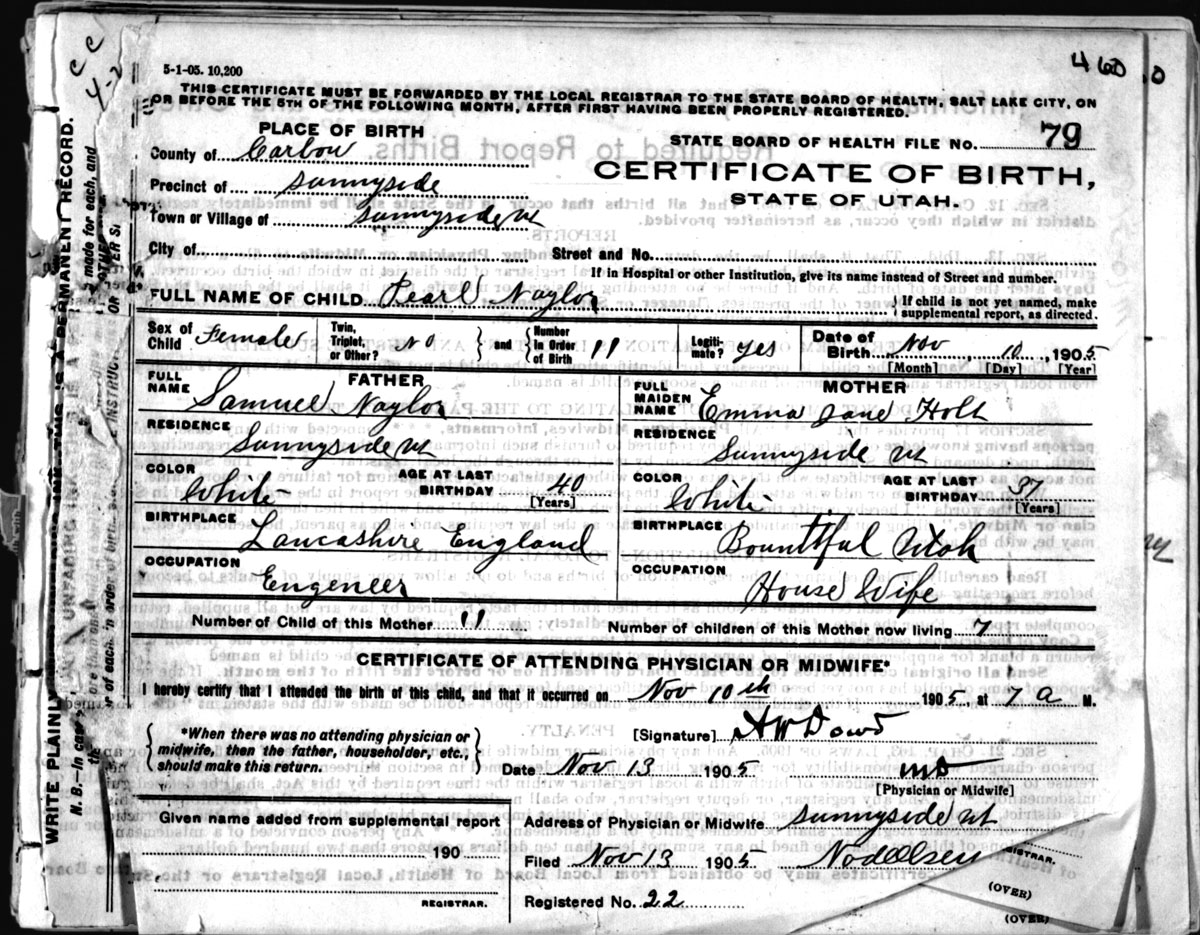 5-1-05. 10,200
460
THIS CERTIFICATE MUST BE FORWARDED BY THE LOCAL REGISTRAR TO THE STATE BOARD OF HEALTH, SALT LAKE CITY, ON
OR BEFORE THE 5TH OF THE FOLLOWING MONTH, AFTER FIRST HAVING BEEN PROPERLY REGISTERED.
PLACE OF BIRTH
STATE BOARD OF HEALTH FILE No. 79
County of Carbon
CERTIFICATE OF BIRTH,
Precinct of Sunnyside
STATE OF UTAH.
Town or Village of Sunnyside ut
City of Street and No.
If in Hospital or other Institution, give its name instead of Street and number.
FULL NAME OF CHILD Pearl Naylor
If child is not yet named, make
supplemental report, as directed.
Sex of Child Female
Twin, Triplet, or Other? NO
and
Number In Order of Birth 11
Legiti- mate? yes
Date of Birth Nov 10, 1905
[Month] [Day] [Year]
FULL NAME FATHER
Samuel Naylor
RESIDENCE
Sunnyside ut
COLOR White
AGE AT LAST BIRTHDAY 40
[Years]
BIRTHPLACE
Lancashire England
OCCUPATION
Engeneer
FULL MAIDEN NAME MOTHER
Emma Jane Holt
RESIDENCE
Sunnyside ut
COLOR White
AGE AT LAST BIRTHDAY 37
[Years]
BIRTHPLACE
Bountiful Utah
OCCUPATION
House Wife
Number of Child of this Mother 11
Number of children of this Mother now living 7
CERTIFICATE OF ATTENDING PHYSICIAN OR MIDWIFE*
I hereby certify that I attended the birth of this child, and that it occurred on Nov 10th 1905, at 7 a M.
*When there was no attending physician or
midwife, then the father, householder, etc.,
should make this return.
[Signature] A W Dowd
Date Nov 13 1905 MD
[Physician or Midwife]
Given name added from supplemental report
190
REGISTRAR.
Address of Physician or Midwife Sunnyside ut
Filed Nov 13 1905
REGISTRAR.
Registered No. 22
(OVER)
(OVER)
WRITE PLAINLY
UNFADING INK
THIS IS A PERMANENT RECORD.
N. B.—In case
made for each, and
of each, in order of birth